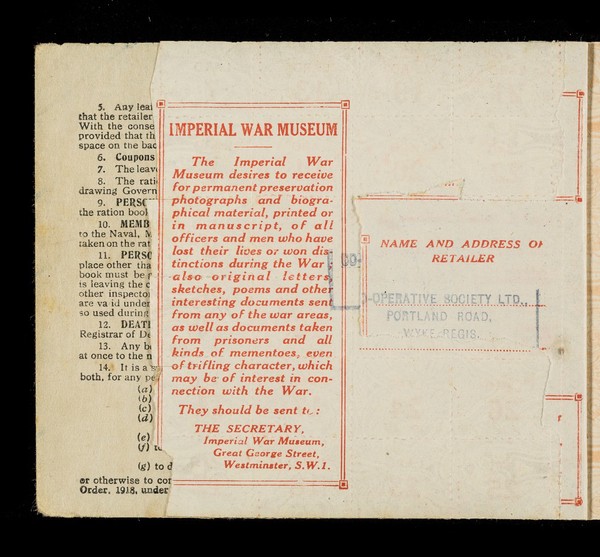 5. Any leaf
that the retailer
With the conse
provided that th
space on the bac
6. Coupons
7. The leave
8. The rati
drawing Govern
9. PERSO
the ration book
10. MEMB
to the Naval, M
taken on the rat
11. PERSO
place other tha
book must be r
is leaving the c
other inspector
are va id under
so used during
12. DEATH
Registrar of De
13. Any b
at once to the n
14. It is a s
both, for any pe
(a)
(b)
(c)
(d)
(e)
(f) to
(g) to d
or otherwise to con
Order, 1918, under
IMPERIAL WAR MUSEUM
The Imperial War
Museum desires to receive
for permanent preservation
photographs and biogra-
phical material, printed or
in manuscript, of all
officers and men who have
lost their lives or won dis-
tinctions during the War
also original letters,
sketches, poems and other
interesting documents sent
from any of the war areas,
as well as documents taken
from prisoners and all
kinds of mementoes, even
of trifling character, which
may be of interest in con-
nection with the War.
They should be sent to:
THE SECRETARY,
Imperial War Museum,
Great George Street,
Westminster, S.W.1.
NAME AND ADDRESS OF
RETAILER
CO-
O-OPERATIVE SOCIETY LTD.,
PORTLAND ROAD,
WYKE REGIS.
r